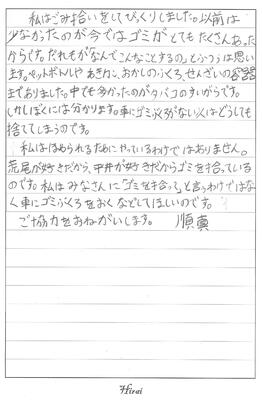 私はごみ拾いをしてびっくりしました。以前は
少なかったのが今ではゴミがとてもたくさんあった
からです。だれもが「なんでこんなことするの」とふつうは思い
ます。ペットボトルやあきカン、おかしのふくろ、せんざいの容器
までありました。中でも多かったのがタバコのすいがらです。
しかしぼくには分かります。車にゴミぶくろがない人はどうしても
捨ててしまうのです。
私はほめられるためにやっているわけではありません。
荒尾が好きだから、中井が好きだからゴミを拾っている
のです。私はみなさんに「ゴミを拾って」と言うわけではな
く車にゴミぶくろをおくなどしてほしいのです。
ご協力をおねがいします。 順真
Hirai